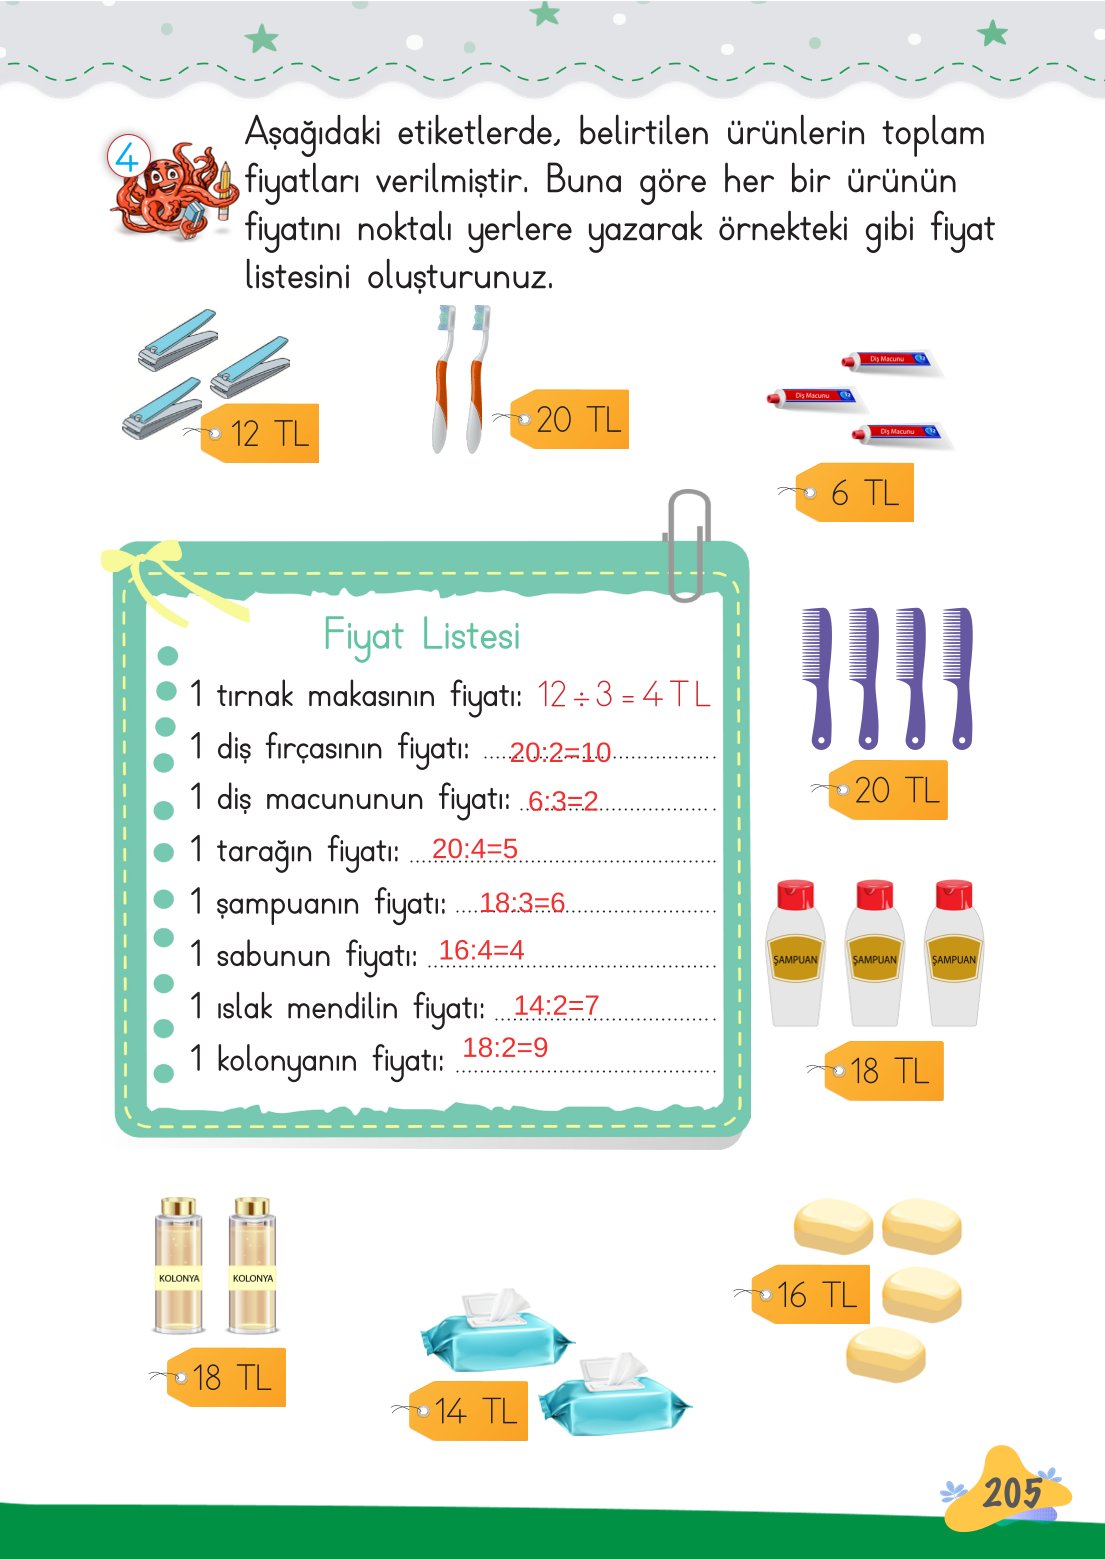 4
Aşağıdaki etiketlerde, belirtilen ürünlerin toplam
fiyatları verilmiştir. Buna göre her bir ürünün
fiyatını noktalı yerlere yazarak örnekteki gibi fiyat
listesini oluşturunuz.
12 TL
20 TL
Diş Macunu
Diş Macunu
Diş Macunu
6 TL
Fiyat Listesi
1 tırnak makasının fiyatı: 12 ÷ 3 = 4 TL
1 diş fırçasının fiyatı: 20:2=10
1 diş macununun fiyatı: 6:3=2
1 tarağın fiyatı: 20:4=5
1 şampuanın fiyatı: 18:3=6
1 sabunun fiyatı: 16:4=4
1 ıslak mendilin fiyatı: 14:2=7
1 kolonyanın fiyatı: 18:2=9
20 TL
ŞAMPUAN ŞAMPUAN ŞAMPUAN
18 TL
KOLONYA KOLONYA
18 TL
14 TL
16 TL
205